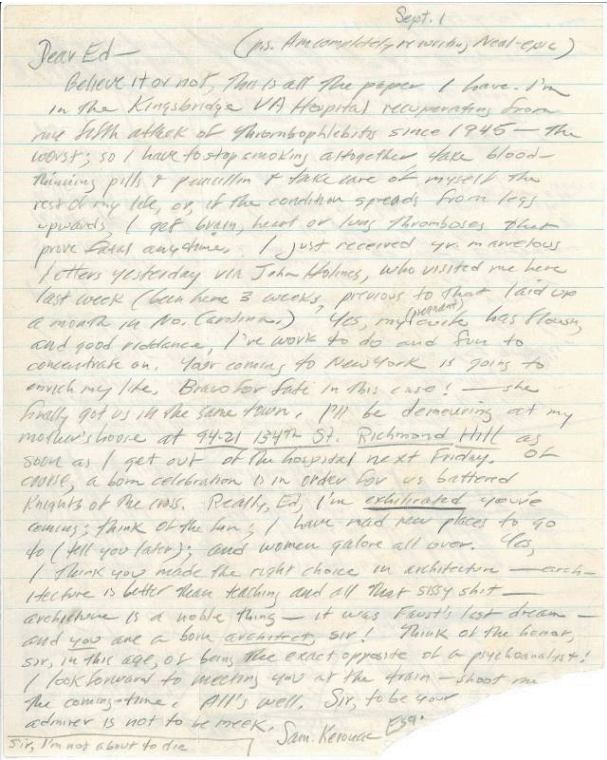 Sept. 1
Dear Ed — (p.s. Am completely rewriting Neal-epic)
Believe it or not, this is all the paper I have. I'm
in the Kingsbridge VA Hospital recuperating from
my fifth attack of thrombophlebitis since 1945 — the
worst; so I have to stop smoking altogether take blood-
thinning pills & penicillin & take care of myself the
rest of my life, or, if the condition spreads from legs
upwards, I get brain, heart or lung thromboses that
prove fatal anytime. I just received yr. marvelous
letters yesterday via John Holmes, who visited me here
last week (been here 3 weeks, previous to that laid up
a month in No. Carolina.) Yes, my (pregnant) wife has flown,
and good riddance, I've work to do and fun to
concentrate on. Your coming to New York is going to
enrich my life. Bravo for fate in this case! — she
finally got us in the same town. I'll be demeuring at my
mother's house at 94-21 134th St. Richmond Hill as
soon as I get out of the hospital next Friday. Of
course, a born celebration is in order for us battered
Knights of the cross. Really, Ed, I'm exhilirated you're
coming; think of the fun; I have mad new places to go
to (tell you later); and women galore all over. Yes,
I think you made the right choice in architecture — arch-
itecture is better than teaching and all that sissy shit —
architecture is a noble thing — it was Faust's last dream —
and you are a born architect, sir! Think of the honor,
sir, in this age, of being the exact opposite of a psychoanalyst!
I look forward to meeting you at the train — shoot me
the coming-time. All's well. Sir, to be your
admirer is not to be meek.
Sam. Kerouac Esq.
Sir, I'm not about to die